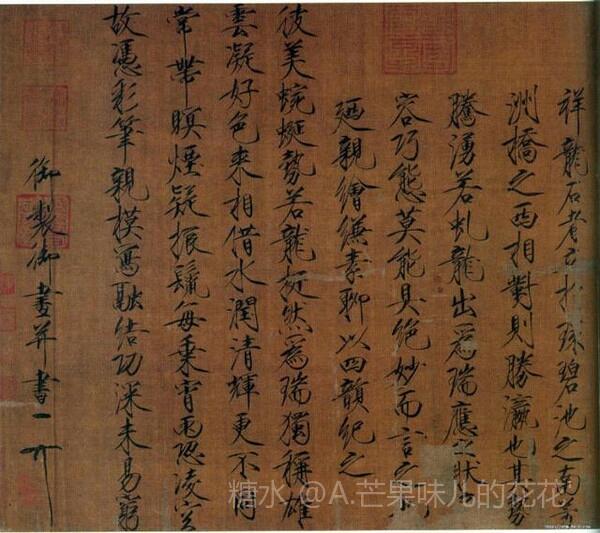 祥龍石者立於環碧池之南芳
洲橋之西相對則勝瀛也其勢
騰湧若虬龍出為瑞應之狀奇
容巧態莫能具絕妙而言之也
廼親繪縑素聊以四韻紀之
彼美蜿蜒勢若龍挺然為瑞獨稱雄
雲凝好色來相借水潤清輝更不同
常帶暝煙疑振鬣每乘宵雨恐凌空
故憑彩筆親模寫融結功深未易窮
御製御畫并書
糖水 @A.芒果味儿的花花